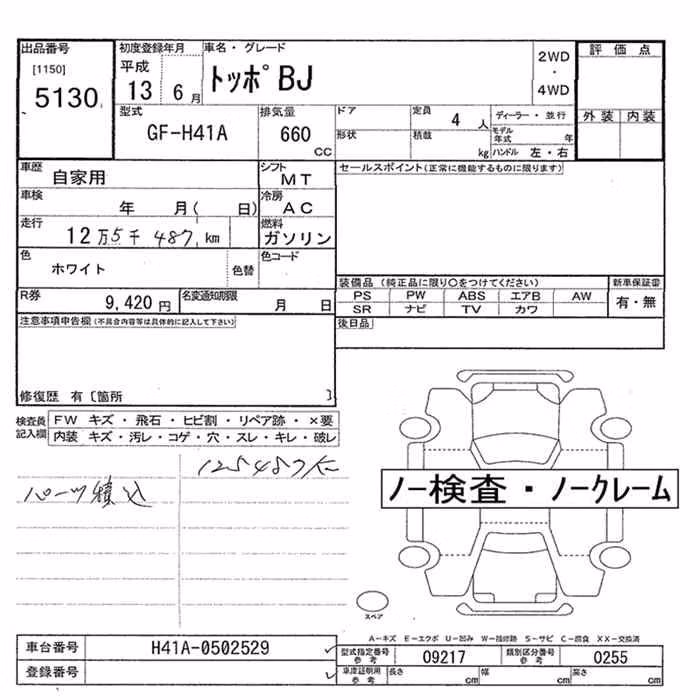 出品番号 初度登録年月 車名・グレード 2WD ・ 4WD 評価点
[1150] 平成 トッポBJ
5130 13 6月
型式 排気量 ドア 定員 4人 ディーラー・並行 外装 内装
GF-H41A 660 CC 形状 積載 kg モデル年式 年
ハンドル 左・右
車歴 自家用 シフト MT セールスポイント(正常に機能するものに限ります)
車検 年 月( 日) 冷房 AC
走行 12万5千487km 燃料 ガソリン
色 ホワイト 色替 色コード
装備品(純正品に限り○をつけてください) 新車保証書
R券 9,420円 名変通知期限 月 日 PS PW ABS エアB AW 有・無
SR ナビ TV カワ
注意事項申告欄(不具合内容等は具体的に記入して下さい) 後日品
修復歴 有〔箇所 〕
検査員記入欄 FW キズ・飛石・ヒビ割・リペア跡・×要
内装 キズ・汚レ・コゲ・穴・スレ・キレ・破レ
125487K
パーツ積込
ノー検査・ノークレーム
スペア
A-キズ E-エクボ U-凹み W-補修跡 S-サビ C-腐食 XX-交換済
車台番号 H41A-0502529 型式指定番号 参考 09217 類別区分番号 参考 0255
登録番号 車庫証明用 参考 長さ cm 幅 cm 高さ cm